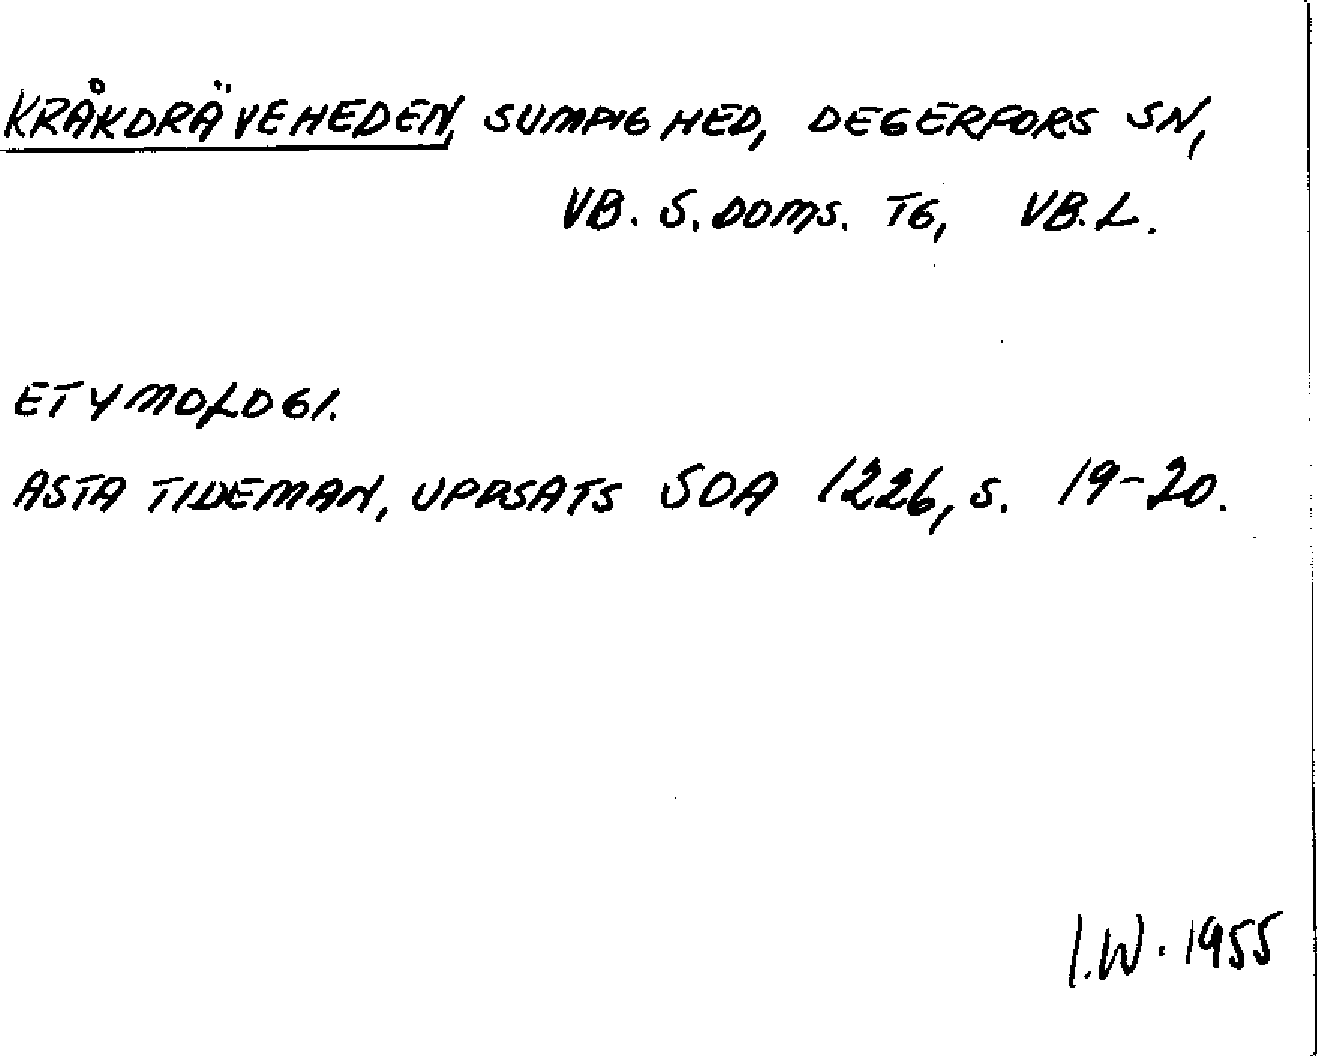 KRÅKDRÄVEHEDEN, SUMPIG HED, DEGERFORS SN,
VB. S. DOMS. TG, VB. L.
ETYMOLOGI.
ASTA TIDEMAN, UPPSATS SOA 1226, S. 19-20.
I.W. 1955